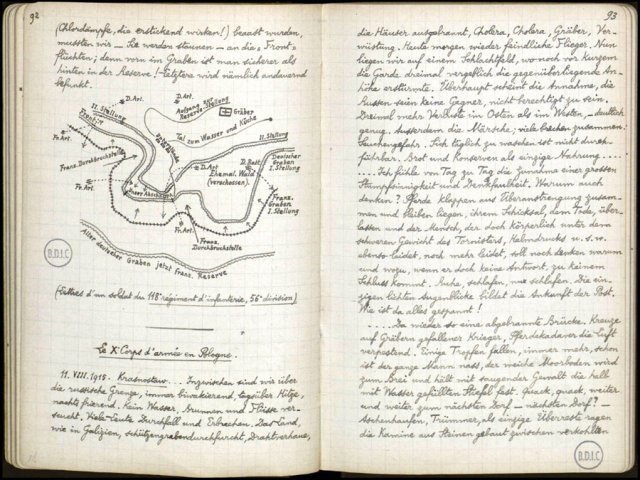 92
(Chlordämpfe, die erstickend wirken!) beaast wurden,
mussten wir – Sie werden staunen – an die "Front"
flüchten; denn vorn im Graben ist man sicherer als
hinten in der Reserve! Letztere wird nämlich andauernd
befunkt.
D. Art.
D. Art.
II. Stellung
Front
Aufgang zur
Reserve-Stellung
Gräber
Tal zum Wasser und Küche
II. Stellung
Fr. Art.
Franz. Durchbruchstelle
Fr. Art.
D. Art.
D. Batt.
Ehemal. Wald
(verschossen).
Deutscher
Graben
I. Stellung
Unser Abschnitt
Franz.
Graben
I. Stellung
Fr. Art.
Franz.
Durchbruchstelle
Alter deutscher Graben jetzt Franz. Reserve
B.D.I.C
(Lettres d'un soldat du 118e régiment d'infanterie, 56e division)
Le Xe Corps d'armée en Pologne.
11. VIII. 1915. Krasnostaw... Inzwischen sind wir über
die russische Grenze, immer biwakierend, tagsüber Hitze,
nachts frierend. Kein Wasser, Brunnen und Flüsse ver-
seucht. Viele Leute Durchfall und Erbrechen. Das Land,
wie in Galizien, schützengrabendurchfurcht, Drahtverhaue,
93
die Häuser ausgebrannt, Cholera, Cholera, Gräber, Ver-
wüstung. Heute morgen wieder feindliche Flieger. Nun
liegen wir auf einem Schlachtfeld, wo noch vor kurzem
die Garde dreimal vergeblich die gegenüberliegende An-
höhe erstürmte. Überhaupt scheint die Annahme, die
Russen seien keine Gegner, nicht berechtigt zu sein.
Dreimal mehr Verluste im Osten als im Westen, deutlich
genug. Ausserdem die Märsche; viele brechen zusammen.
Seuchengefahr. Sich täglich zu waschen ist nicht durch-
führbar. Brot und Konserven als einzige Nahrung....
....Ich fühle von Tag zu Tag die Zunahme einer grossen
Stumpfsinnigkeit und Denkfaulheit. Warum auch
denken? Pferde klappen aus Überanstrengung zusam-
men und bleiben liegen, ihrem Schicksal, dem Tode, über-
lassen und der Mensch, der doch körperlich unter dem
schweren Gewicht des Tornisters, Helmdrucks u. s. w.
ebenso leidet, noch mehr leidet, soll noch denken warum
und wozu, wenn er doch keine Antwort, zu keinem
Schluss kommt. Ruhe, schlafen, nur schlafen. Die ein-
zigen lichten Augenblicke bildet die Ankunft der Post.
Wie ist da alles gespannt!
....Da wieder so eine abgebrannte Brücke. Kreuze
auf Gräbern gefallener Krieger, Pferdekadaver die Luft
verpestend. Einige Tropfen fallen, immer mehr, schon
ist der ganze Mann nass, der weiche Moorboden wird
zum Brei und hält mit saugender Gewalt die halb
mit Wasser gefüllten Stiefel fest. Quack, quack, weiter
und weiter zum nächsten Dorf – nächsten Dorf? –
Aschenhaufen, Trümmer, als einzige Überreste ragen
die Kamine aus Steinen gebaut zwischen verkohlten
B.D.I.C